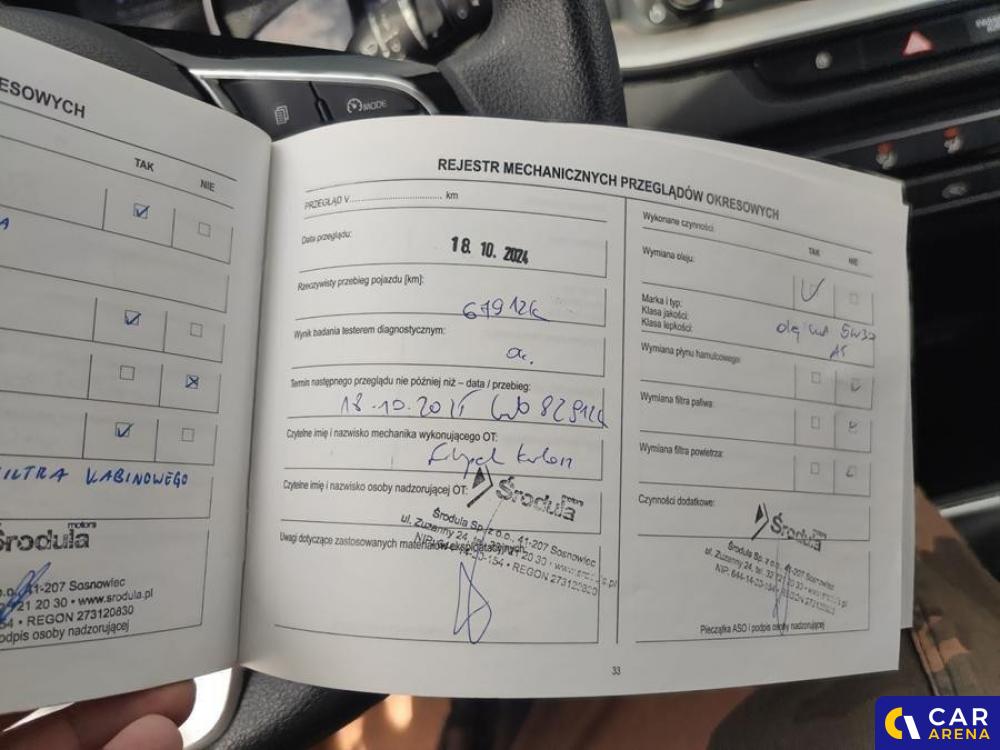 ESOWYCH
TAK
NIE
A
FILTRA KABINOWEGO
motors
Środula
41-207 Sosnowiec
21 20 30 • www.srodula.pl
• REGON 273120830
podpis osoby nadzorującej
MODE
REJESTR MECHANICZNYCH PRZEGLĄDÓW OKRESOWYCH
PRZEGLĄD V.............................. km
Data przeglądu:
18. 10. 2024
Rzeczywisty przebieg pojazdu [km]:
67912k
Wynik badania testerem diagnostycznym:
Termin następnego przeglądu nie później niż – data / przebieg:
18.10.2025 lub 82912k
Czytelne imię i nazwisko mechanika wykonującego OT:
Czytelne imię i nazwisko osoby nadzorującej OT:
motors
Środula
Środula Sp. z o.o., 41-207 Sosnowiec
ul. Zuzanny 24, tel. 32 721 20 30 • www.srodula.pl
Uwagi dotyczące zastosowanych materiałów eksploatacyjnych:
NIP: 644-14-00-154 • REGON 273120830
Wykonane czynności:
TAK
NIE
Wymiana oleju:
Marka i typ:
Klasa jakości:
Klasa lepkości:
5W30
A5
Wymiana płynu hamulcowego:
Wymiana filtra paliwa:
Wymiana filtra powietrza:
Czynności dodatkowe:
motors
Środula
Środula Sp. z o.o., 41-207 Sosnowiec
ul. Zuzanny 24, tel. 32 721 20 30 • www.srodula.pl
REGON 273120830
Pieczątka ASO i podpis osoby nadzorującej
33
CAR
ARENA